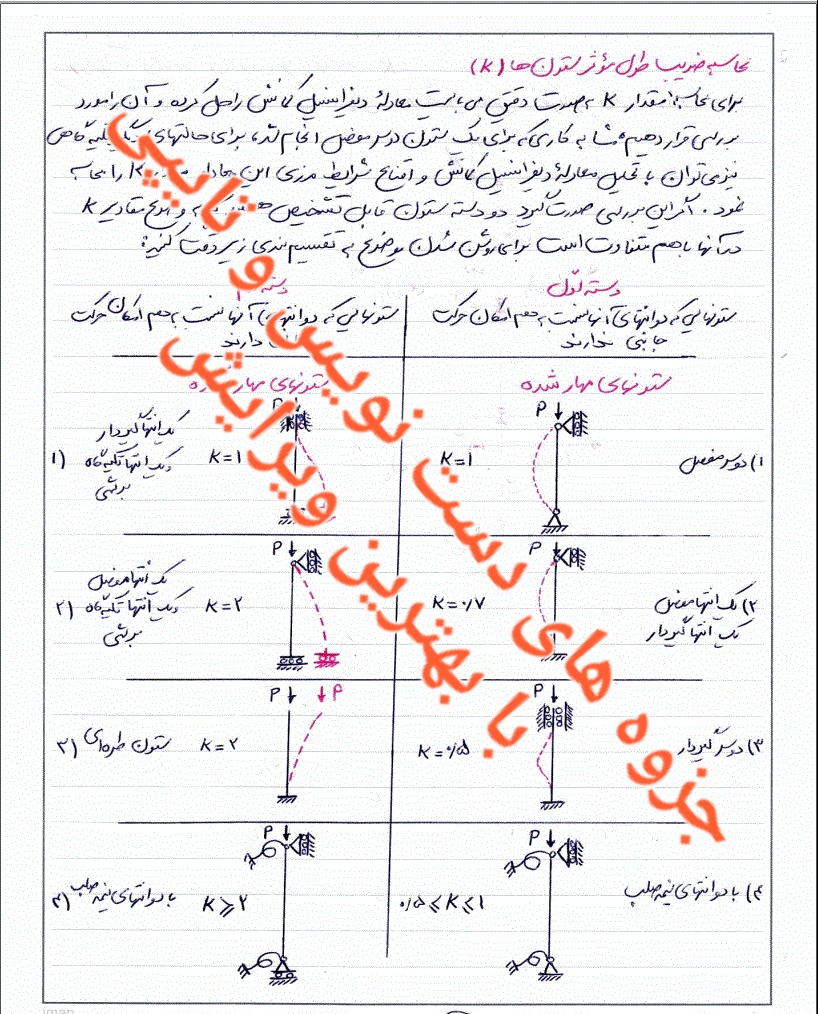 محاسبه ضریب طول مؤثر ستون ها (K)
برای محاسبه مقدار K به صورت دقیق می بایست معادلهٔ دیفرانسیل کمانش را حل کرده و آن را مورد
بررسی قرار دهیم مشابه کاری که برای یک ستون دو سر مفصل انجام شد، برای حالتهای تکیه گاهی
نیز می توان با تحلیل معادلهٔ دیفرانسیل کمانش و اقناع شرایط مرزی این معادله K را محاسبه
نمود. اگر این بررسی صورت گیرد دو دسته ستون قابل تشخیص مقادیر K
در آنها با هم متفاوت است برای روشن شدن موضوع به تقسیم بندی زیر دقت کنید:
دسته اول
دسته
ستونهایی که دو انتهای آنها نسبت به هم امکان حرکت
جانبی ندارند
ستونهایی که دو انتهای آنها نسبت به هم امکان حرکت
دارند
ستونهای مهار شده
ستونهای مهار
۱) دو سر مفصل
K=۱
P
۱) یک انتها گیردار
و یک انتها تکیه گاه
برشی
K=۱
P
۲) یک انتها مفصل
یک انتها گیردار
K=۰/۷
P
۲) یک انتها مفصل
و یک انتها تکیه گاه
برشی
K=۲
P
۳) دو سر گیردار
K=۰/۵
P
۳) ستون طره ای
K=۲
P P
۴) با دو انتهای نیمه صلب
۰/۵ ≤ K ≤ ۱
P
۴) با دو انتهای نیمه صلب
K ≥ ۲
P
جزوه های دست نویس و تایپی
با بهترین ویرایش
iman